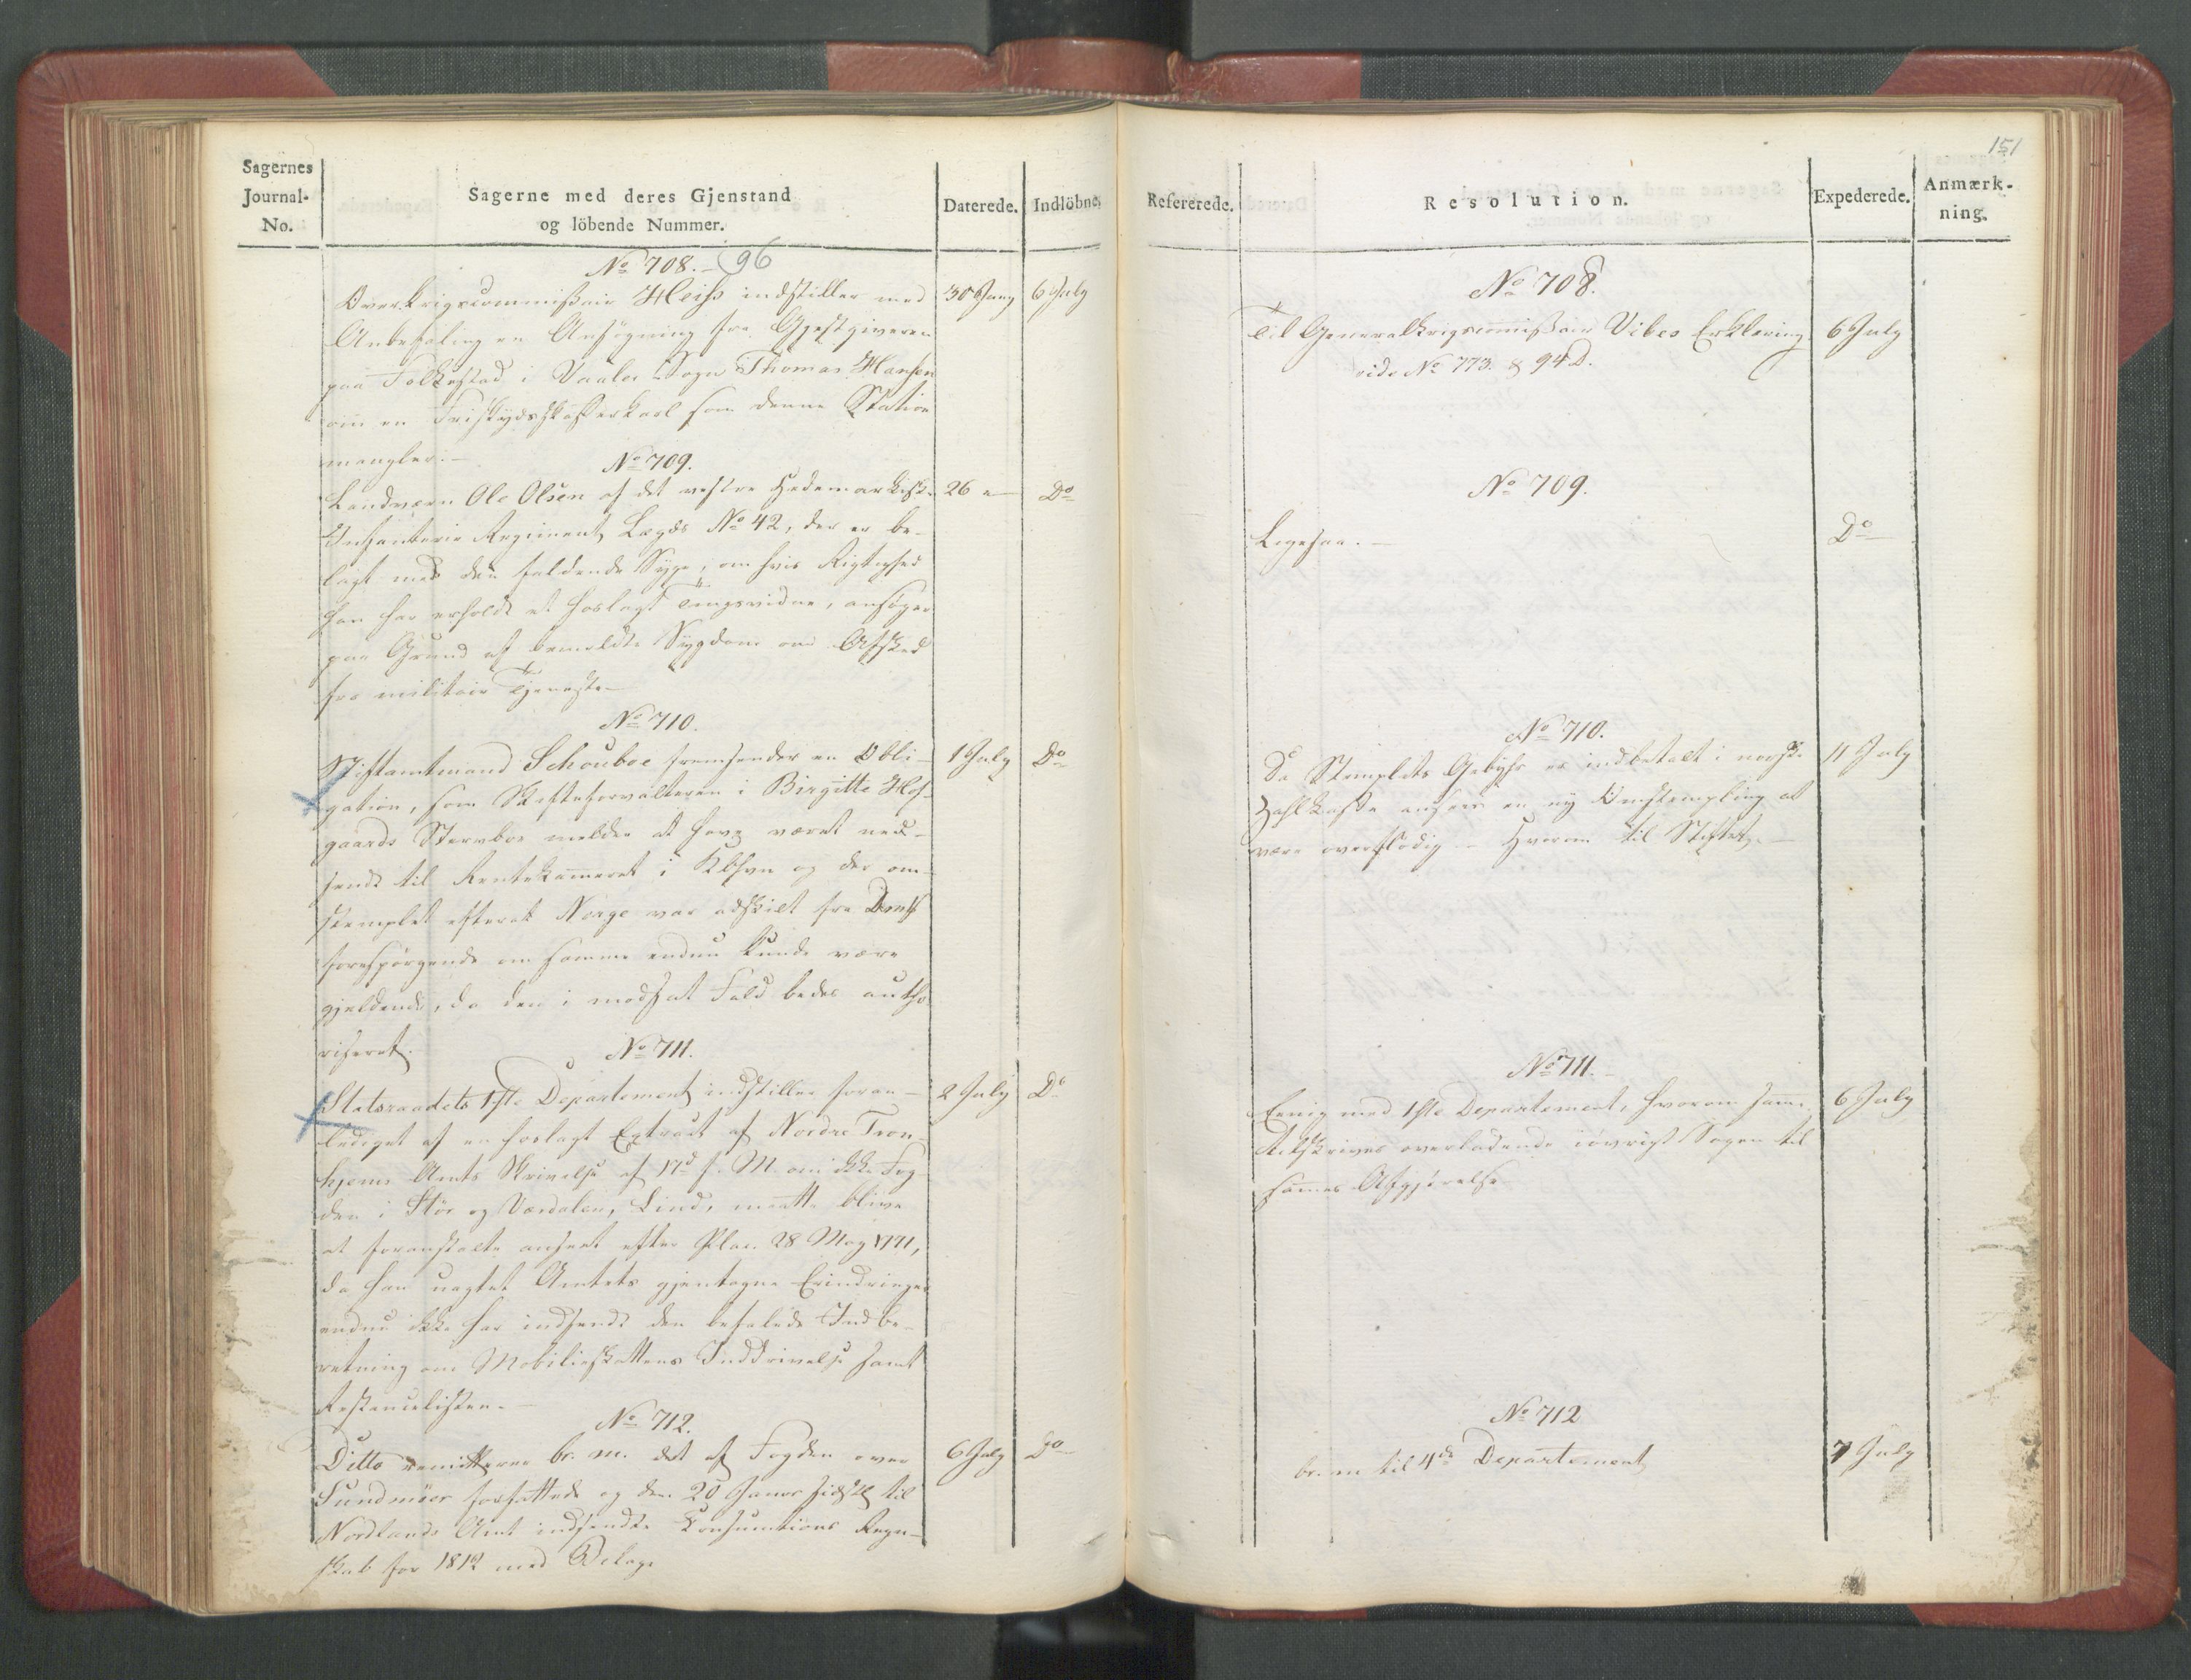 Sagernes
Journal-
No.
Sagerne med deres Gjenstand
og löbende Nummer.
Daterede.
Indlöbne.
No 708. - 96
Overkrigscommissair Heiss indstiller med
Anbefaling en Ansögning fra Gjestgiveren
paa Folkestad i Vaaler Sogn Thomas Hansen
om en Friskydsskafferkarl som denne Station
mangler.-
30 Juny
6 July
No 709.
Landværn Ole Olsen af det vestre Hedemarkiske
Infanterie Regiment, Lægds No 42, der er be-
lagt med den faldende Syge, om hvis Rigtighed
han har erholdt et hoslagt Tingsvidne, ansöger
paa Grund af bemeldte Sygdom om Afsked
fra militair Tjeneste-
26
Do
No 710.
Stiftamtmand Schouboe fremsender en Obli-
gation, som Skifteforvalteren i Birgitte Hof-
gaards Stervboe melder at have været ned-
sendt til Rentekammeret i Kbhvn og der om-
stemplet efterat Norge var adskilt fra Danmk
forespörgende om samme endnu kunde være
gjeldende, da den i modsat Fald bedes autho-
riseret.
1 July
Do
No 711.
Statsraadets 1ste Departement indstiller foran-
lediget af en hoslagt Extract af Nordre Tron-
hjems Amts Skrivelse af 17d f. M. om ikke Fog-
den i Stör og Værdalen, Lind, maatte blive
at foranstalte anseet efter Plac. 28 May 1771,
da han uagtet Amtets gjentagne Erindringer
endnu ikke har indsendt den befalede Indbe-
retning om Mobilieskattens Inddrivelse samt
Restancelisten.-
2 July
Do
No 712.
Ditto remitterer br. m. det af Fogden over
Sundmöer forfattede og den 20 Januar sidstl. til
Nordlands Amt indsendte Consumtions Regn-
skab for 1812 med Belage
6 July
Do
151
Refererede.
Resolution.
Expederede.
Anmærk-
ning.
No 708.
Til Generalkrigscommissair Vibes Erklæring.
vide No 773. & 942.
6 July
No 709.
Ligesaa.-
Do
No 710.
Da Stemplets Gebyhr er indbetalt i norske
Zahlkasse ansees en ny Omstempling at
være overflödig - Hvorom til Stiftet.-
11 July
No 711.-
Eenig med 1ste Departement, hvorom samme
tilskrives overladende iövrigt Sagen til
sammes Afgjörelse
6 July
No 712
br. m til 4de Departement
7 July